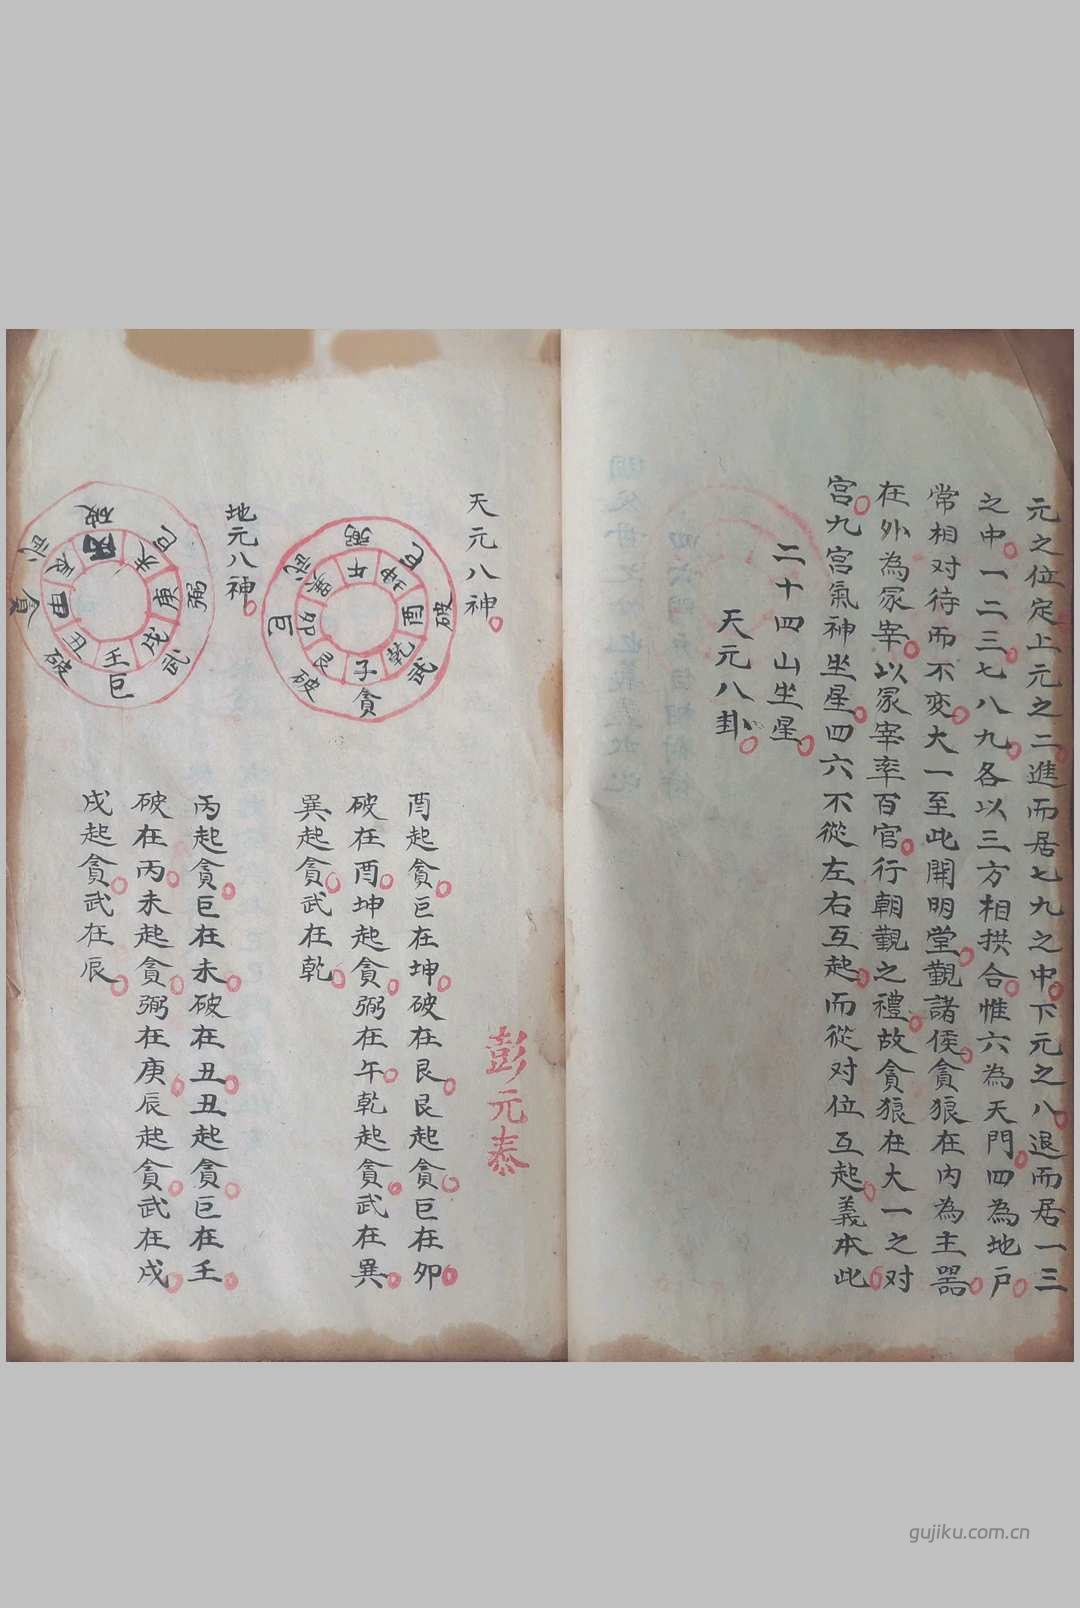 元之位定上元之二進而居七九之中下元之八退而居一三
之中一二三七八九各以三方相拱合惟六為天門四為地戶
常相对待而不变大一至此開明堂觀諸侯貪狼在內為主器
在外為冢宰以冢宰率百官行朝覲之禮故貪狼在大一之对
宮九宮氣神坐星四六不從左右互起而從对位互起義本此
二十四山坐星
天元八卦
天元八神
子 貪
乾 武
酉 破
坤 巳
午 弼
巽 武
卯 巨
艮 破
彭元泰
酉起貪巨在坤破在艮艮起貪巨在卯
破在酉坤起貪弼在午乾起貪武在巽
巽起貪武在乾
地元八神
壬 巨
戌 武
庚 弼
未 巳
丙 破
辰 武
甲 貪
丑 破
丙起貪巨在未破在丑丑起貪巨在壬
破在丙未起貪弼在庚辰起貪武在戌
戌起貪武在辰
gujiku.com.cn